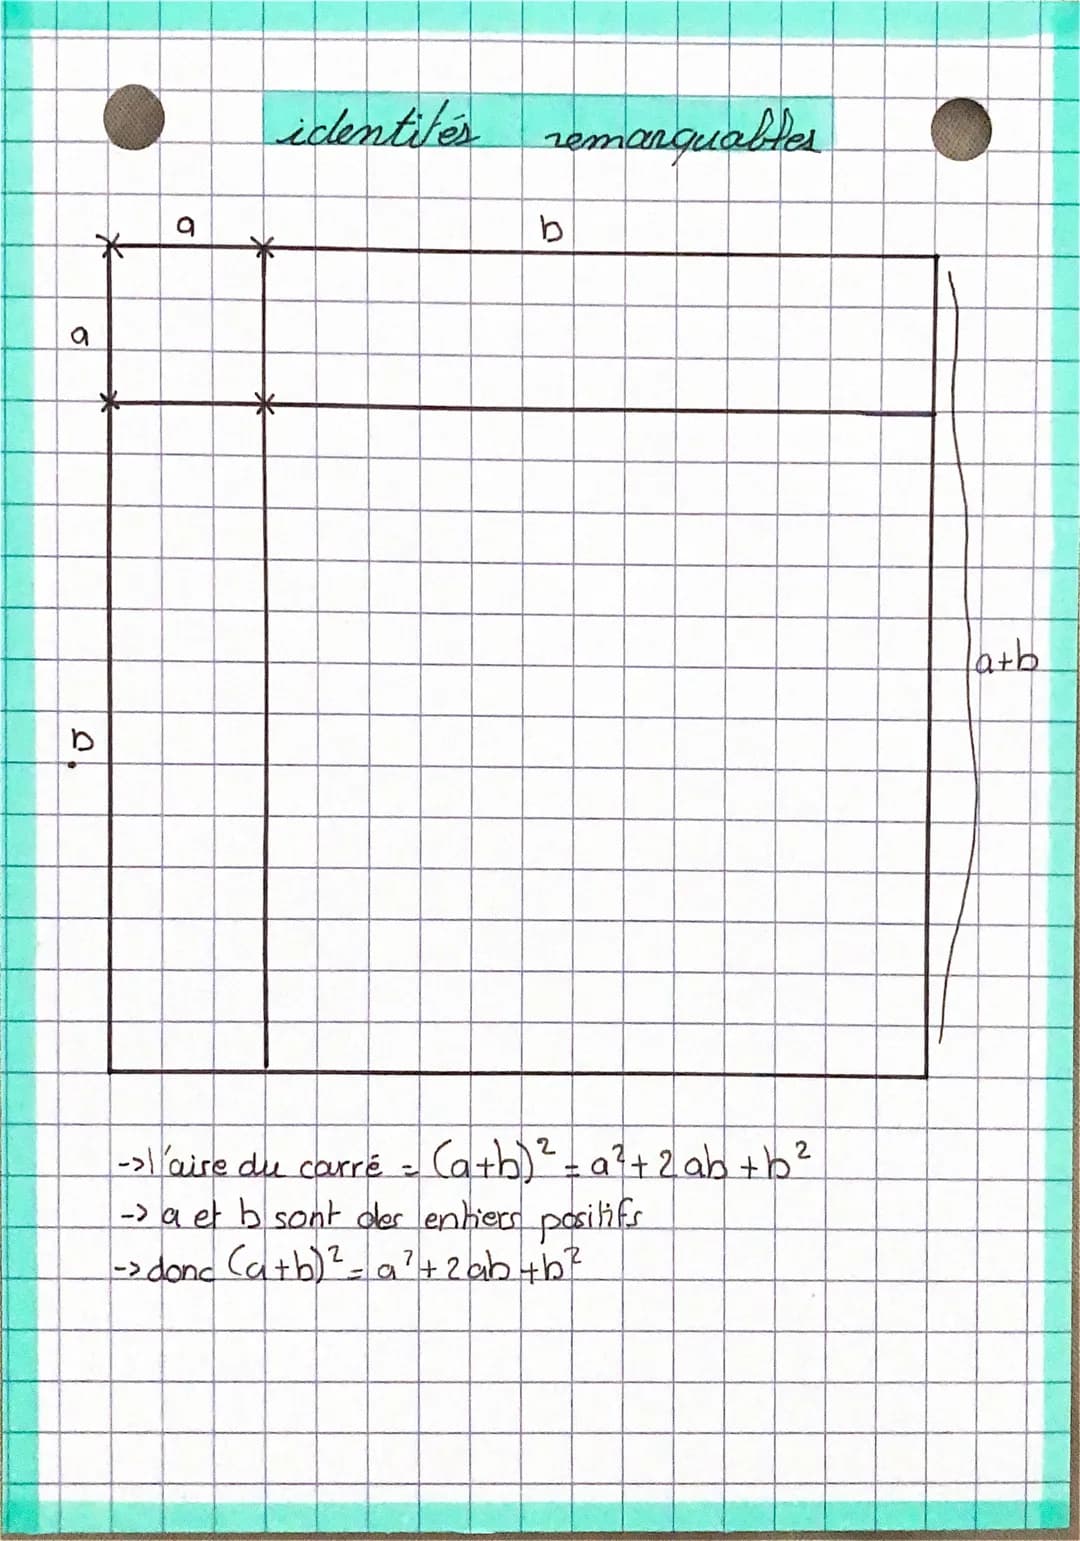 identités remarquables
a b
a
a+b
b
->l'aire du carré = (a+b)² = a²+2ab+b²
-> a et b sont des entiers positifs
-> donc (a+b)² = a²+2ab+b²